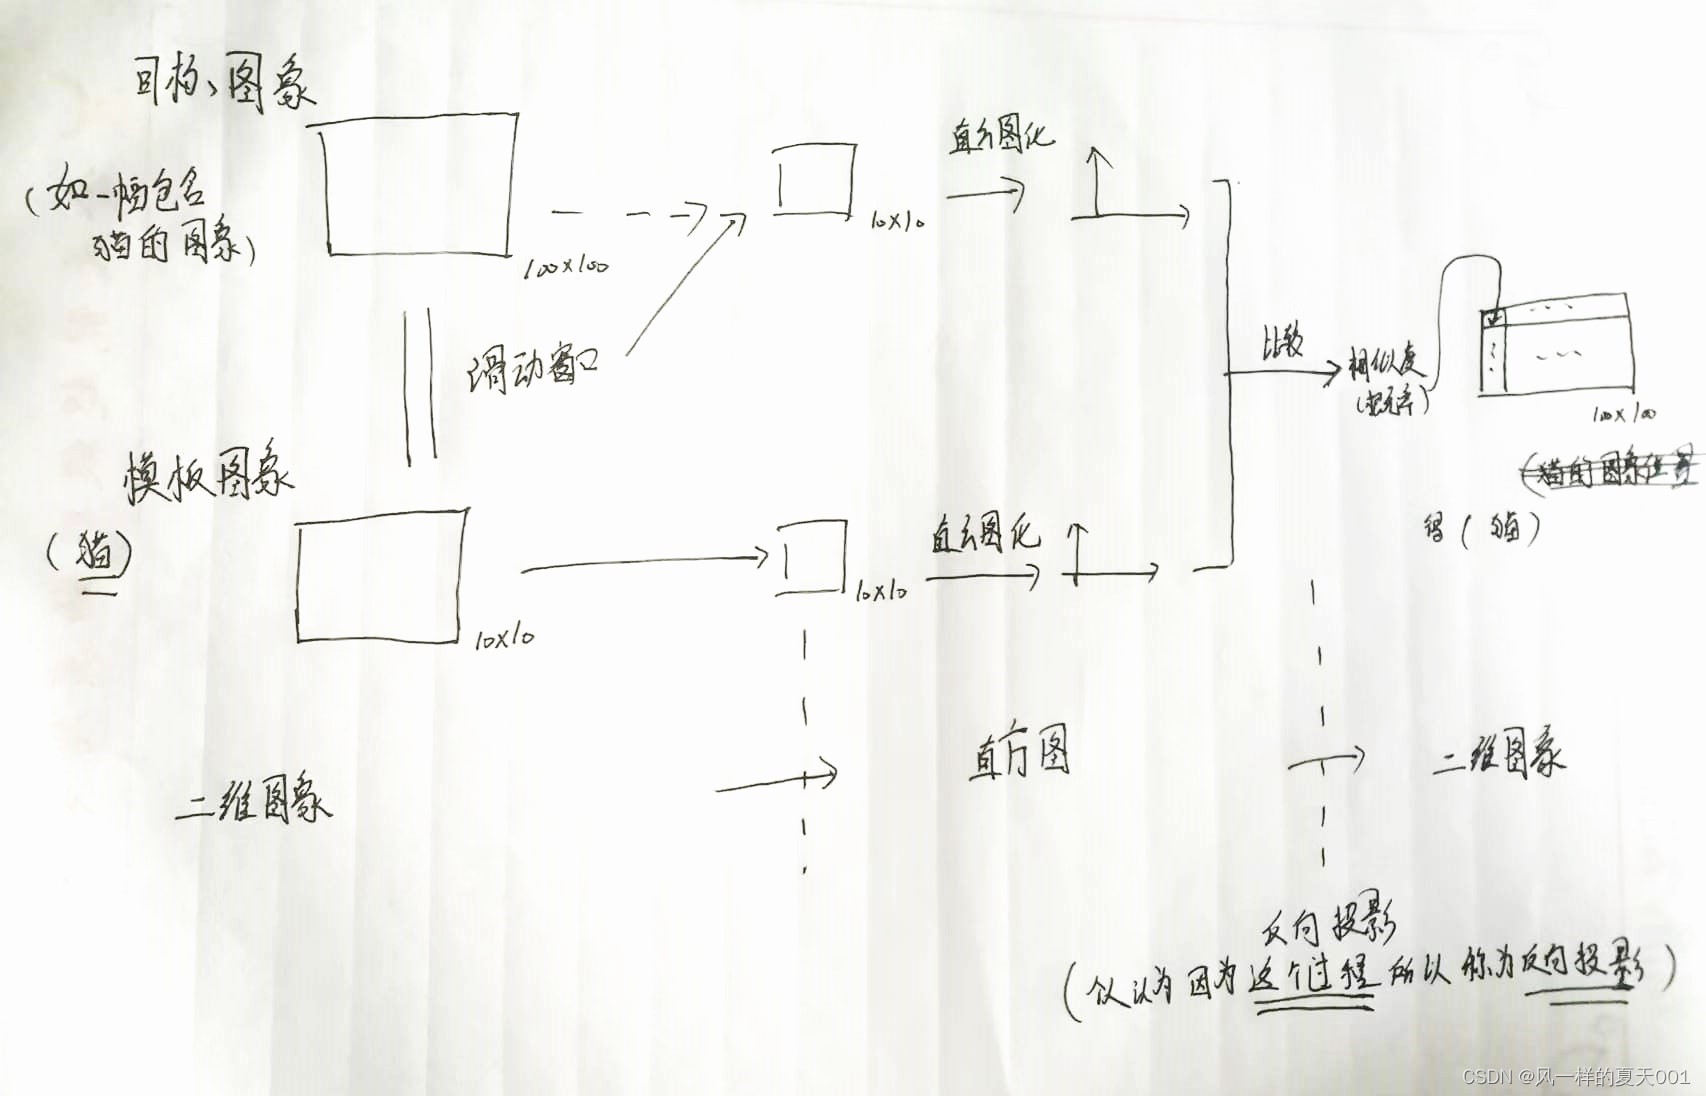 目标、图象
(如一幅包含
猫的图象)
100×100
10×10
直方图化
滑动窗口
比较
相似度
(概率)
100×100
(猫的图象位置
得(猫)
模板图象
(猫)
10×10
10×10
直方图化
二维图象
直方图
二维图象
反向投影
(仅认为因为这个过程所以称为反向投影)
CSDN @风一样的夏天001